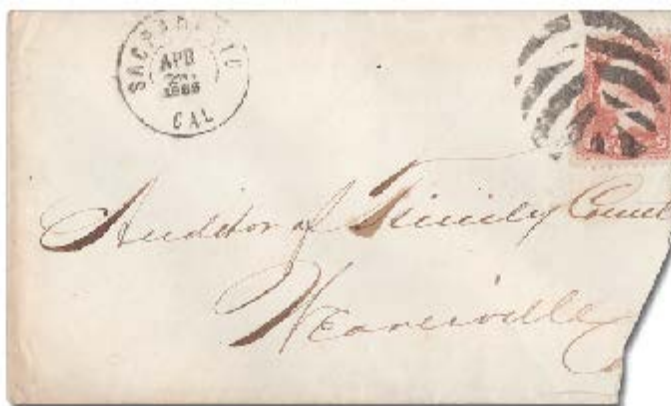 SACRAMENTO
APR
1866
CAL
Auditor of Trinity Coun
Weaverville